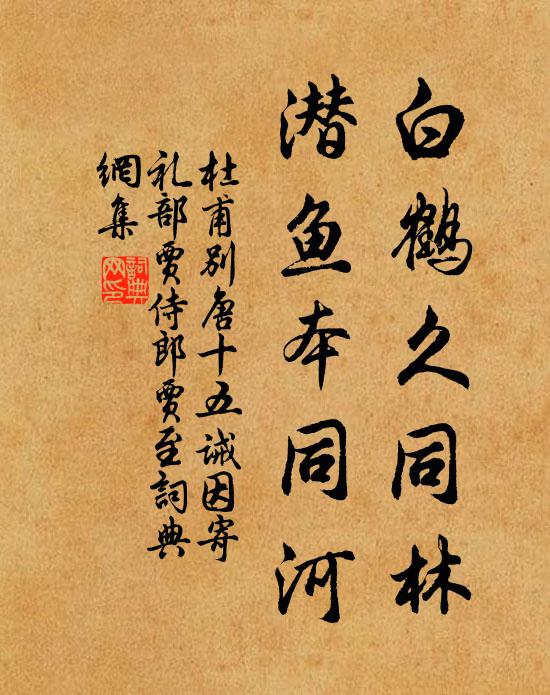 白鹤久同林
潜鱼本同河
杜甫别唐十五诫因寄
礼部贾侍郎贾至詞典
網集
詞典
网印